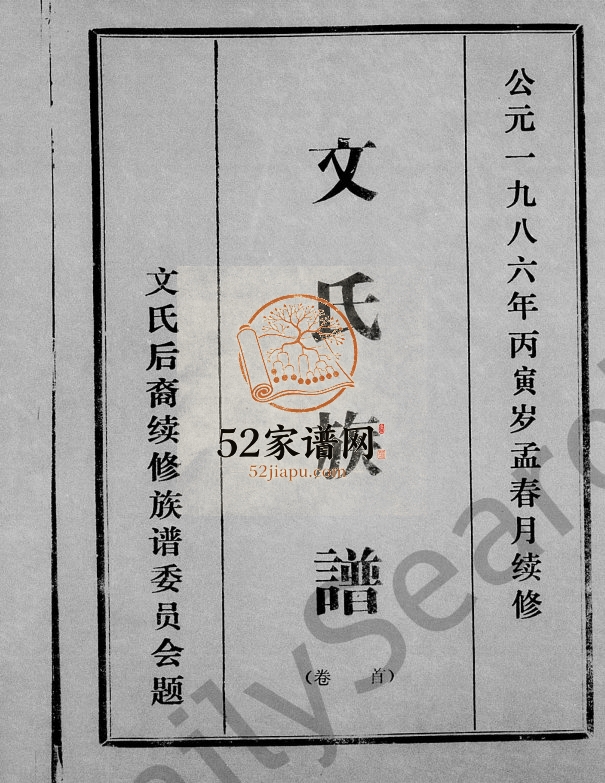 公元一九八六年丙寅岁孟春月续修
文氏族譜
(卷 首)
文氏后裔续修族谱委员会题
52家谱网
52jiapu.com
ilySearc